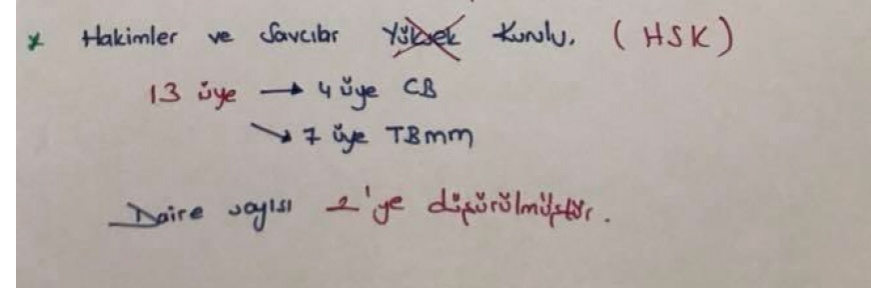 * Hakimler ve Savcılar Yüksek Kurulu. (HSK)
13 üye → 4 üye CB
↘ 7 üye TBMM
Daire sayısı 2'ye düşürülmüştür.